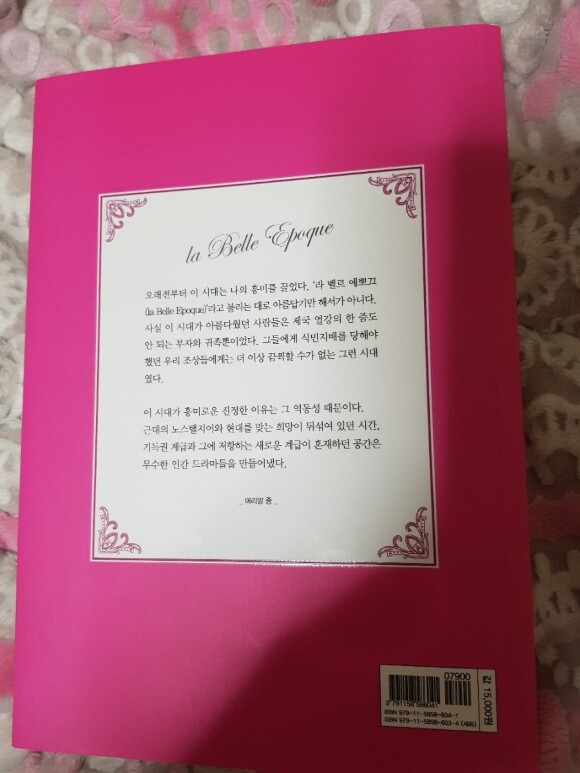 la Belle Epoque
오래전부터 이 시대는 나의 흥미를 끌었다. ‘라 벨르 에뽀끄
(la Belle Epoque)’라고 불리는 대로 아름답기만 해서가 아니다.
사실 이 시대가 아름다웠던 사람들은 제국 열강의 한 줌도
안 되는 부자와 귀족뿐이었다. 그들에게 식민지배를 당해야
했던 우리 조상들에게는 더 이상 끔찍할 수가 없는 그런 시대
였다.
이 시대가 흥미로운 진정한 이유는 그 역동성 때문이다.
근대의 노스탤지어와 현대를 맞는 희망이 뒤섞여 있던 시간,
기득권 계급과 그에 저항하는 새로운 계급이 혼재하던 공간은
무수한 인간 드라마들을 만들어냈다.
_ 머리말 중 _
07900
9 791158 586041
ISBN 979-11-5858-604-1
ISBN 979-11-5858-603-4 (세트)
값 15,000원